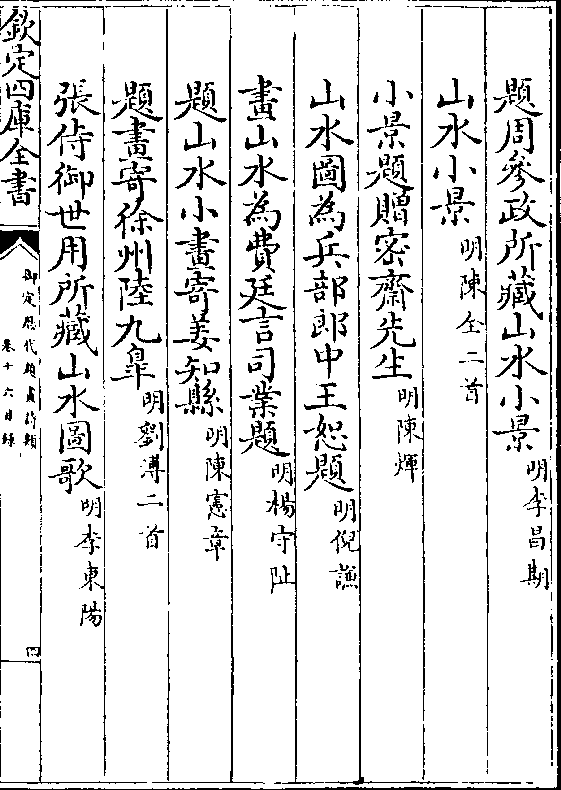 題周參政所藏山水小景明李昌期
山水小景明陳全二首
小景題贈密齋先生明陳煇
山水圖為兵部郎中王恕題明倪謙
畫山水為費廷言司業題明楊守阯
題山水小畫寄姜知縣明陳憲章
題畫寄徐州陸九臯明劉溥二首
張侍御世用所藏山水圖歌明李東陽
欽定四庫全書
御定歷代題畫詩類
卷十六目錄
四